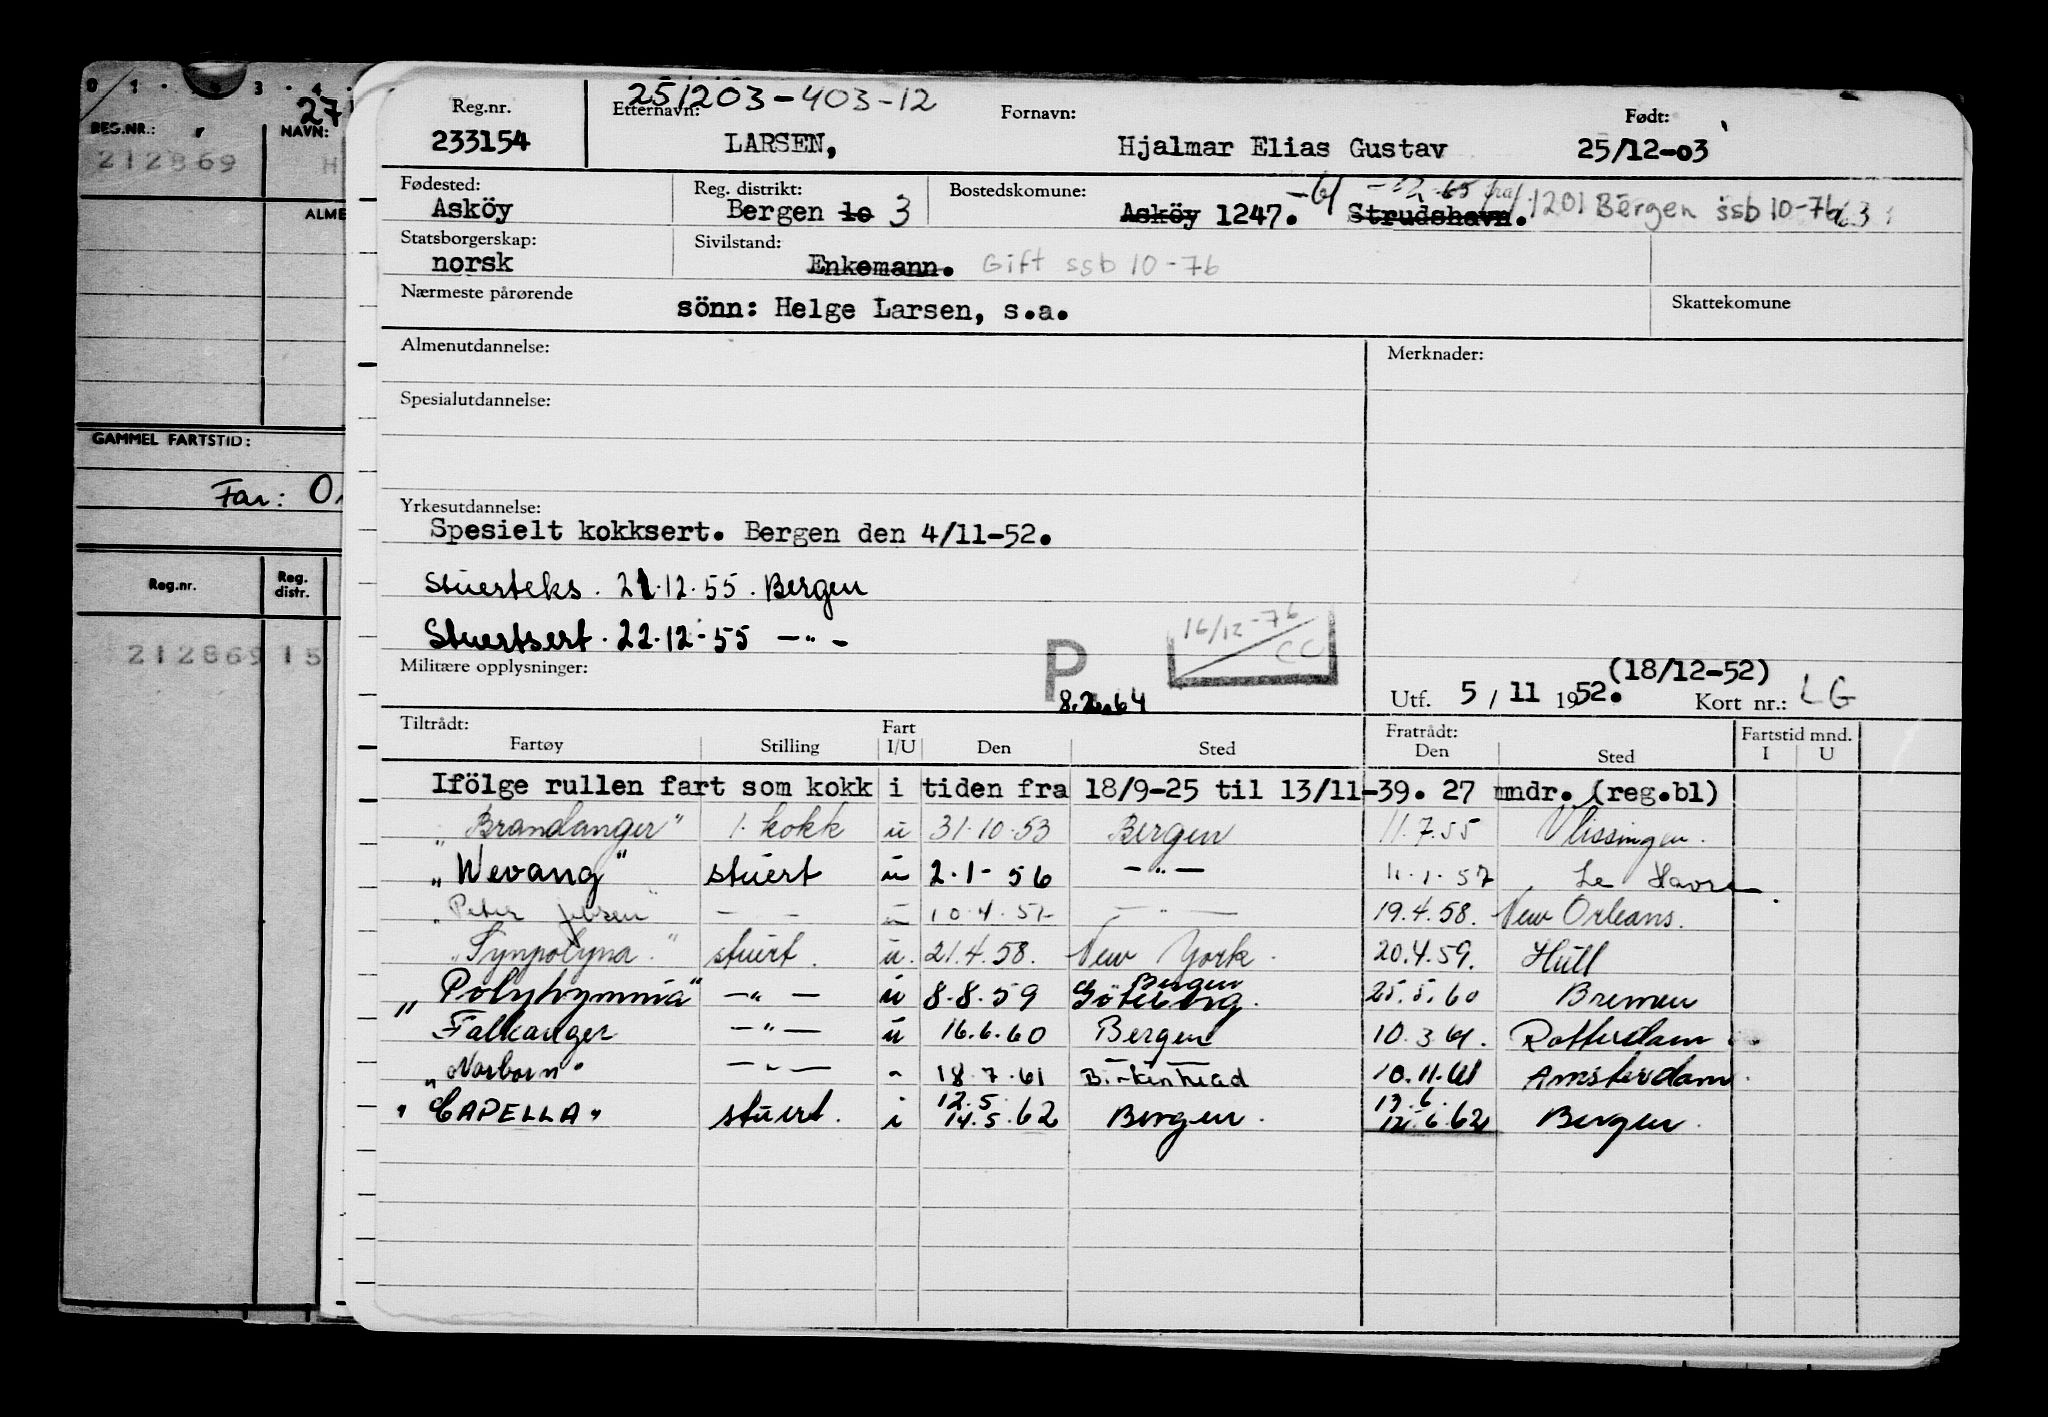 0 1 3 4
27
REG.NR.: NAVN:
212869 H
ALME
GAMMEL FARTSTID:
Far:
Reg.nr. Reg. distr.
212869 15
251203-403-12
Reg.nr. Etternavn: Fornavn: Født:
233154 LARSEN, Hjalmar Elias Gustav 25/12-03
Fødested: Reg. distrikt: Bostedskomune:
Asköy Bergen 10 3 Asköy 1247. -61 Strudshavn. 1201 Bergen ssb 10-76
Statsborgerskap: Sivilstand:
norsk Enkemann. Gift ssb 10-76
Nærmeste pårørende Skattekomune
sönn: Helge Larsen, s.a.
Almenutdannelse: Merknader:
Spesialutdannelse:
Yrkesutdannelse:
Spesielt kokksert. Bergen den 4/11-52.
Stuerteks. 21.12.55. Bergen
Stuertsert. 22.12-55 -"-
16/12-76
CC
P
Militære opplysninger:
8.2.64
(18/12-52)
Utf. 5/11 1952. Kort nr.: LG
Tiltrådt: Fart Fratrådt: Fartstid mnd.
Fartøy Stilling I/U Den Sted Den Sted I U
Ifölge rullen fart som kokk i tiden fra 18/9-25 til 13/11-39. 27 mndr. (reg.bl)
"Brandanger" 1. kokk u 31.10.53 Bergen 11.7.55 Vlissingen.
"Wevang" stuert u 2.1-56 -"- 11.1.57 Le Havre
"Peter Jebsen" - - 10.4.57 -"- 19.4.58. New Orleans.
"Synpolyna" stuert. u. 21.4.58. New York. 20.4.59. Hull
"Polyhymnia" -"- u 8.8.59 Bergen Göteborg. 25.5.60 Bremen
Falkanger -"- u 16.6.60 Bergen 10.3.61. Rotterdam
"Norborn" -"- " 18.7.61 Birkenhead 10.11.61 Amsterdam.
"CAPELLA" stuert. i 12.5. 14.5.62 Bergen. 13.6. 12.6.62 Bergen.